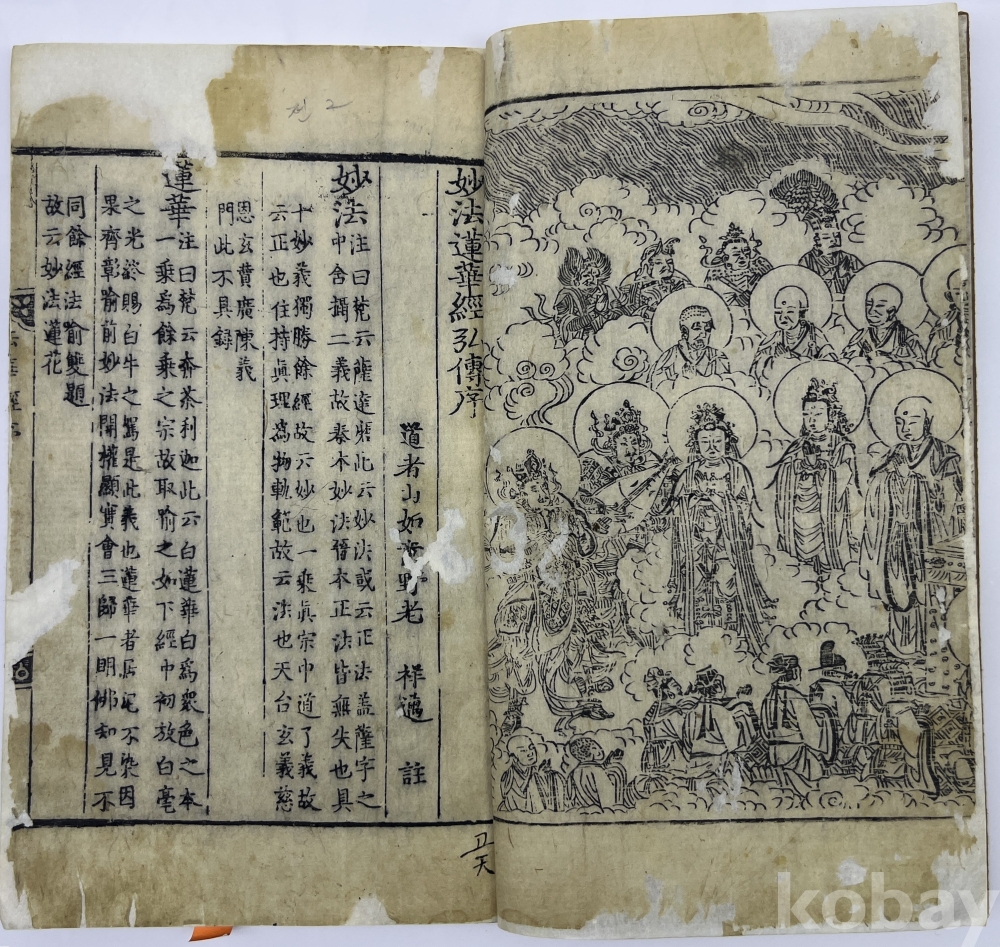 妙法蓮華經弘傳序
道者山如 野老 祥邁 註
妙法注曰梵云薩達磨此云妙法或云正法盖薩字之
中含攝二義故秦本妙法晉本正法皆無失也具
十妙義獨勝餘經故云妙也一乘眞宗中道了義故
云正也住持眞理爲物軌範故云法也天台玄義慈
恩玄賛廣陳義
門此不具録
蓮華注曰梵云奔荼利迦此云白蓮華白爲衆色之本
一乘爲餘乘之宗故取喻之如下經中初放白毫
之光終賜白牛之駕是此義也蓮華者居泥不染因
果齊彰喻前妙法開權顯實會三歸一明佛知見不
同餘經法喻雙題
故云妙法蓮花
天
kobay